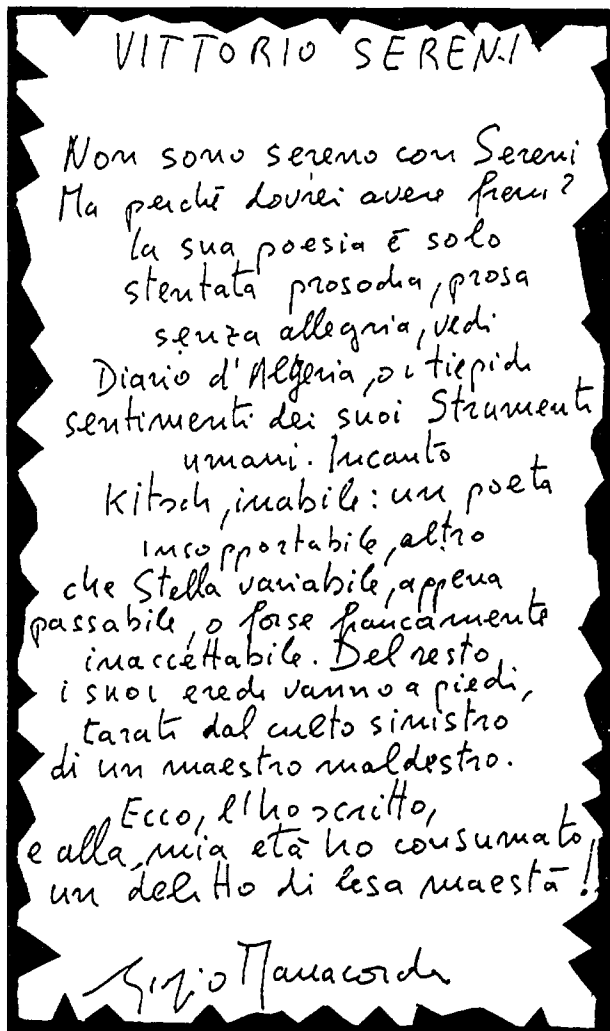 VITTORIO SERENI
Non sono sereno con Sereni
Ma perché dovrei avere freni?
la sua poesia è solo
stentata prosodia, prosa
senza allegria, vedi
Diario d'Algeria, o i tiepidi
sentimenti dei suoi Strumenti
umani. Incanto
Kitsch, inabile: un poeta
insopportabile, altro
che Stella variabile, appena
passabile, o forse francamente
inaccettabile. Del resto,
i suoi eredi vanno a piedi,
tarati dal culto sinistro
di un maestro maldestro.
Ecco, l'ho scritto,
e alla mia età ho consumato
un delitto di lesa maestà!
Giorgio Manacorda